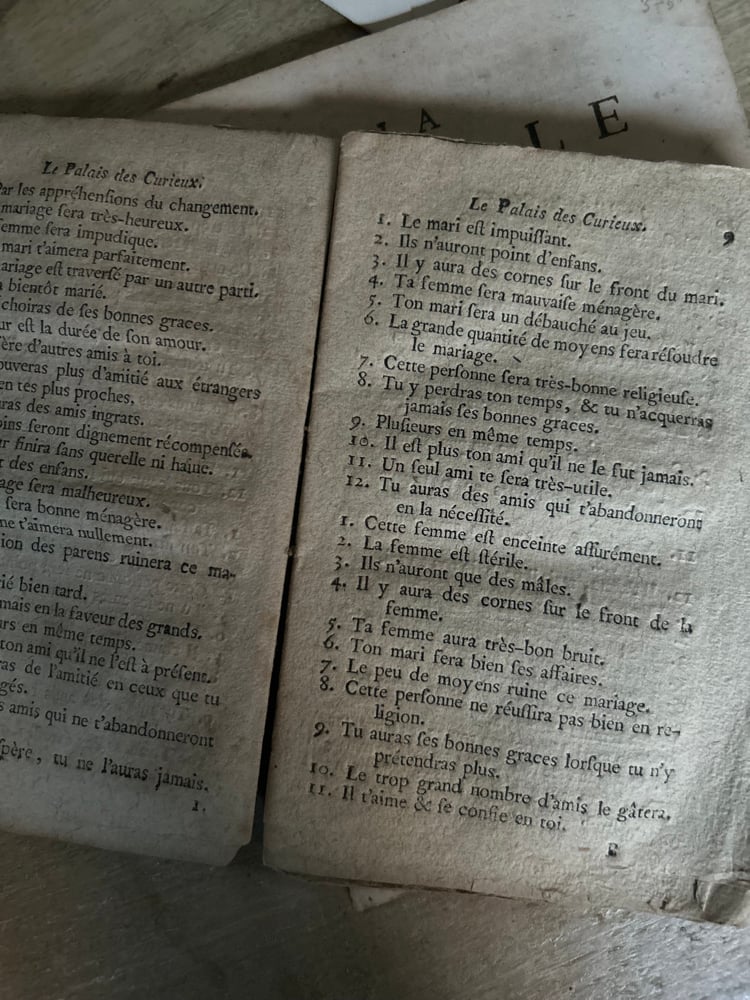 378
LA
LE
Le Palais des Curieux.
Par les appréhenſions du changement.
mariage ſera très-heureux.
femme ſera impudique.
mari t'aimera parfaitement.
mariage eſt traverſé par un autre parti.
bientôt marié.
choiras de ſes bonnes graces.
eſt la durée de ſon amour.
d'autres amis à toi.
plus d'amitié aux étrangers
tes plus proches,
des amis ingrats.
ſeront dignement récompenſés.
finira ſans querelle ni haine.
des enfans.
ſera malheureux.
ſera bonne ménagère.
ne t'aimera nullement.
des parens ruinera ce ma-
bien tard.
mais en la faveur des grands.
en même temps.
ton ami qu'il ne l'eſt à préſent.
de l'amitié en ceux que tu
amis qui ne t'abandonneront
tu ne l'auras jamais.
1.
Le Palais des Curieux.
9
1. Le mari eſt impuiſſant.
2. Ils n'auront point d'enfans.
3. Il y aura des cornes ſur le front du mari.
4. Ta femme ſera mauvaiſe ménagère.
5. Ton mari ſera un débauché au jeu.
6. La grande quantité de moyens fera réſoudre
le mariage.
7. Cette perſonne ſera très-bonne religieuſe.
8. Tu y perdras ton temps, & tu n'acquerras
jamais ſes bonnes graces.
9. Pluſieurs en même temps.
10. Il eſt plus ton ami qu'il ne le fut jamais.
11. Un ſeul ami te ſera très-utile.
12. Tu auras des amis qui t'abandonneront
en la néceſſité.
1. Cette femme eſt enceinte aſſurément.
2. La femme eſt ſtérile.
3. Ils n'auront que des mâles.
4. Il y aura des cornes ſur le front de la
femme.
5. Ta femme aura très-bon bruit.
6. Ton mari fera bien ſes affaires.
7. Le peu de moyens ruine ce mariage.
8. Cette perſonne ne réuſſira pas bien en re-
ligion.
9. Tu auras ſes bonnes graces lorſque tu n'y
prétendras plus.
10. Le trop grand nombre d'amis le gâtera.
11. Il t'aime & ſe confie en toi.
B